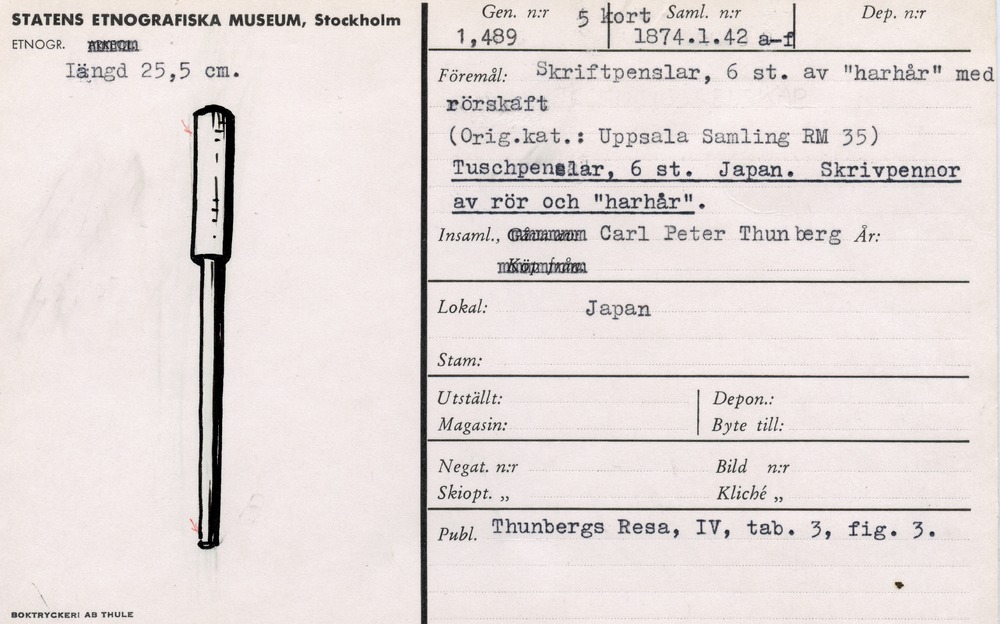 STATENS ETNOGRAFISKA MUSEUM, Stockholm
ETNOGR.
Längd 25,5 cm.
BOKTRYCKERI AB THULE
Gen. n:r 5 kort Saml. n:r Dep. n:r
1,489 1874.1.42 a-f
Föremål: Skriftpenslar, 6 st. av "harhår" med
rörskaft
(Orig.kat.: Uppsala Samling RM 35)
Tuschpenslar, 6 st. Japan. Skrivpennor
av rör och "harhår".
Insaml., Carl Peter Thunberg År:
Köp från
Lokal: Japan
Stam:
Utställt: Depon.:
Magasin: Byte till:
Negat. n:r Bild n:r
Skiopt. „ Kliché „
Publ. Thunbergs Resa, IV, tab. 3, fig. 3.